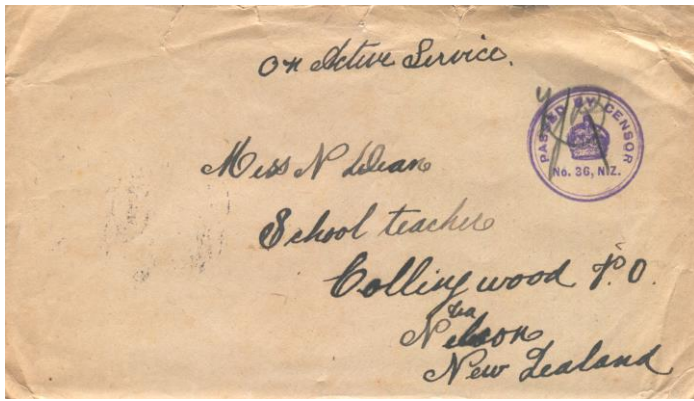 On Active Service.
PASSED BY CENSOR
No. 36, N.Z.
Miss N Dean
School teacher
Collingwood P.O.
via
Nelson
New Zealand